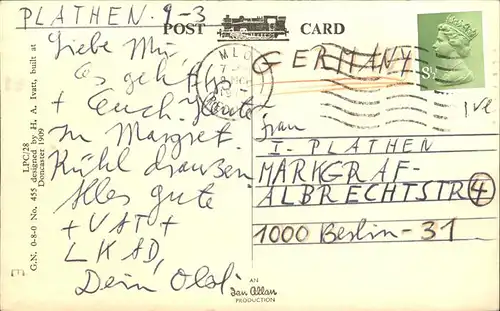 PLATHEN. 9-3
POST CARD
Liebe Mu,
Es geht
+ Euch. Heute
Zu Margret.
Kühl draußen
Alles gute
+ VAT +
LKAD,
Dein Olsl.
GERMANY
8½
Frau
I. PLATHEN
MARKGRAF-
ALBRECHTSTR 4
1000 Berlin-31
LPC/28
G.N. 0-8-0 No. 455 designed by H. A. Ivatt, built at
Doncaster 1909
AN
Ian Allan
PRODUCTION